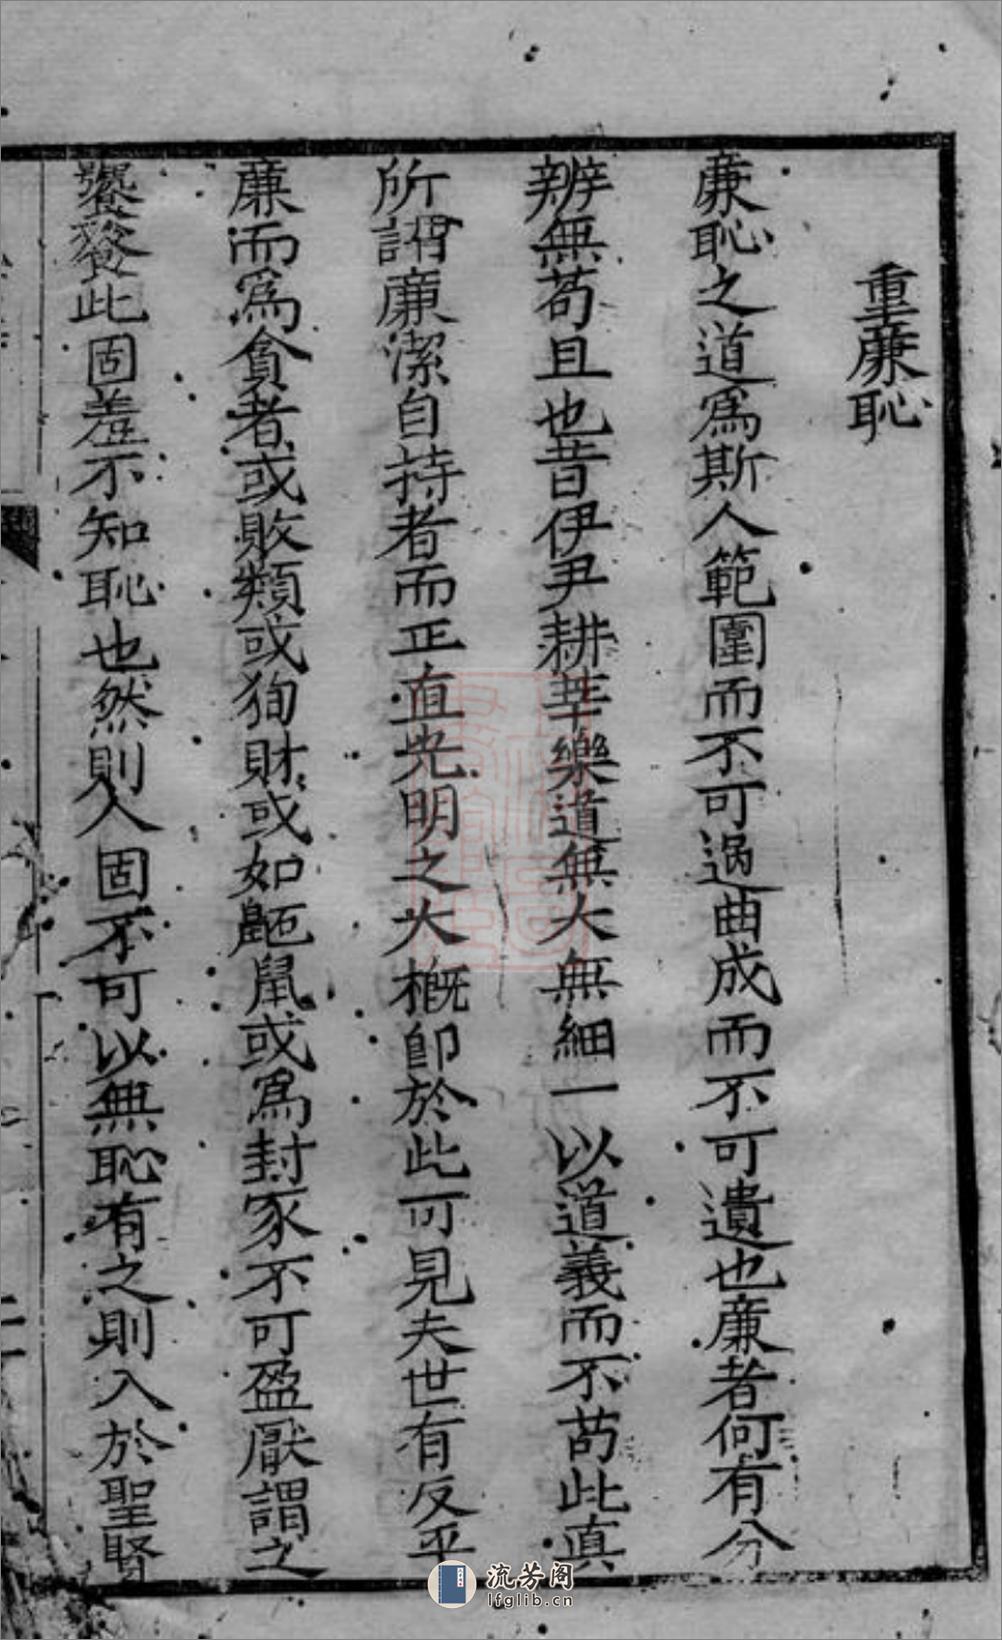 重廉恥
廉恥之道爲斯人範圍而不可過曲成而不可遺也廉者何有分
辨無苟且也昔伊尹耕莘樂道無大無細一以道義而不苟此真
所謂廉潔自持者而正直光明之大概卽於此可見夫世有反乎
廉而爲貪者或敗類或狥財或如鼫鼠或爲封豕不可盈厭謂之
饕餮此固羞不知恥也然則人固不可以無恥有之則入於聖賢
流芳阁
lfglib.cn